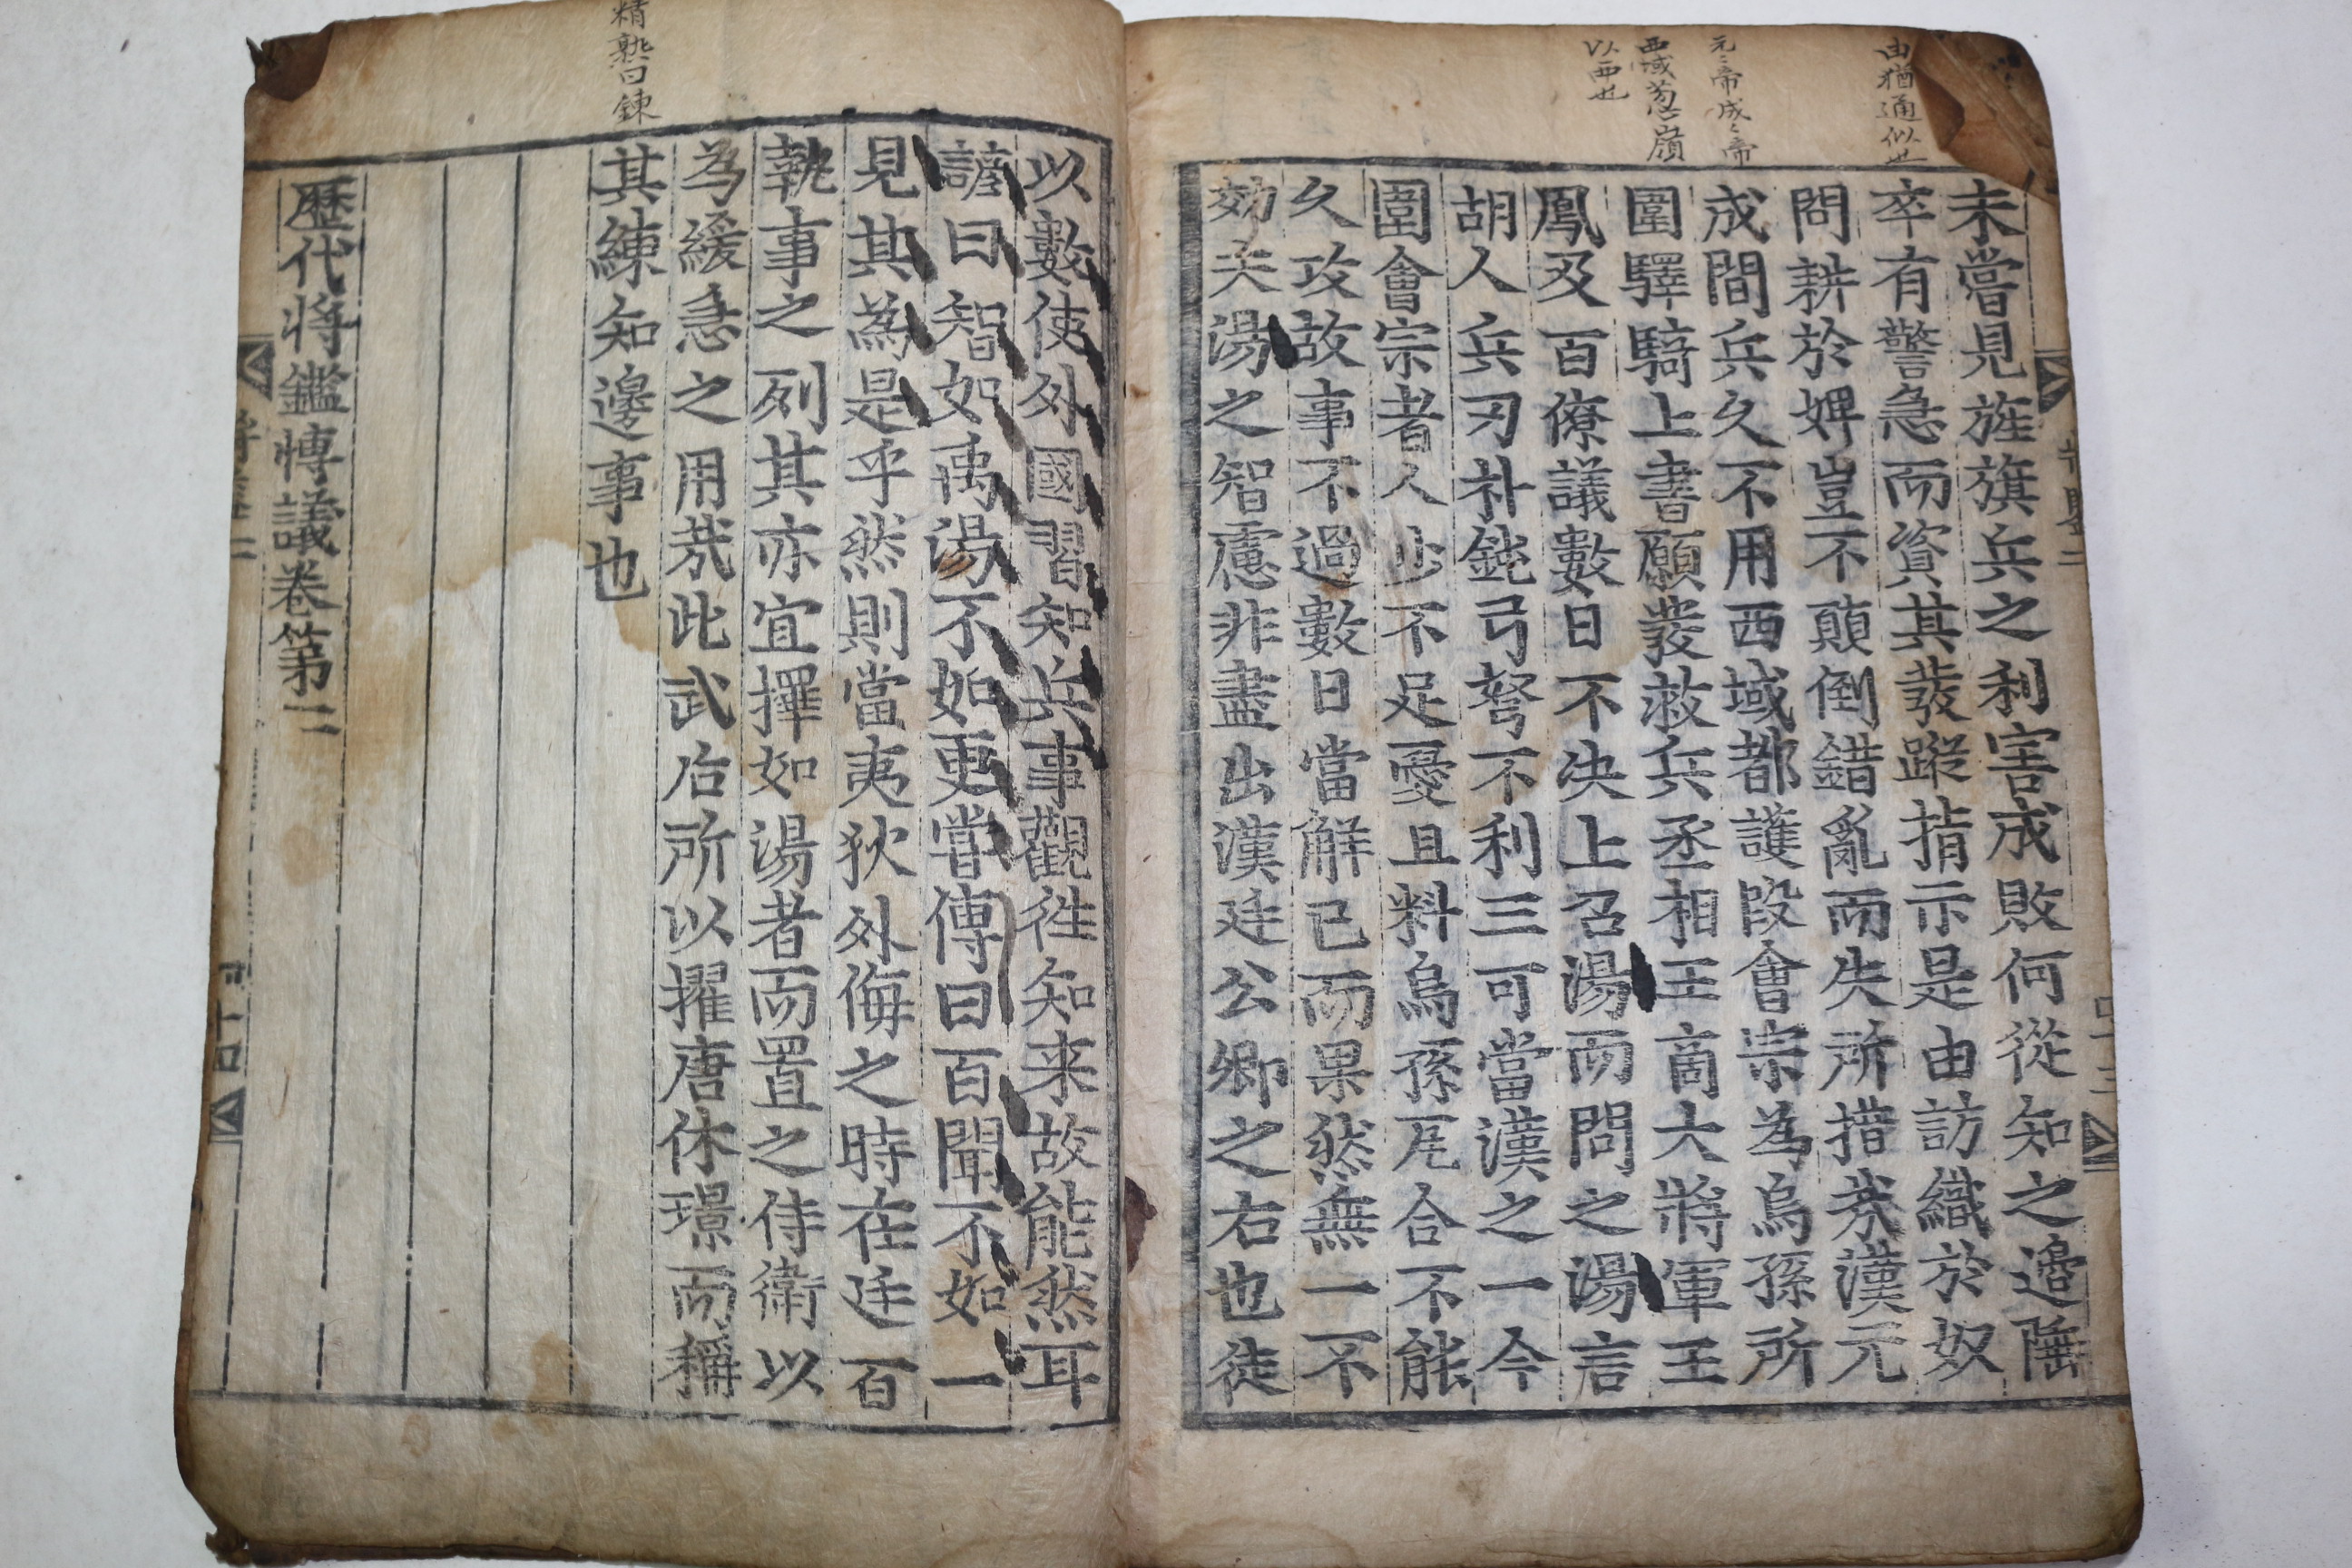 由猶通似也
元〻帝成〻帝
西域葱嶺
以西也
未嘗見旌旗兵之利害成敗何從知之邊陲
卒有警急而資其發蹤指示是由訪織於奴
問耕於婢豈不顛倒錯亂而失所措㢤漢元
成間兵久不用西域都護段會宗為烏孫所
圍驛騎上書願發救兵丞相王商大將軍王
鳳及百僚議數日不決上召湯而問之湯言
胡人兵刃朴鈍弓弩不利三可當漢之一今
圍會宗者人少不足憂且料烏孫瓦合不能
久攻故事不過數日當解已而果然無一不
効夫湯之智慮非盡出漢廷公卿之右也徒
精熟曰鍊
以數使外國習知兵事觀徃知来故能然耳
諺曰智如禹湯不如更嘗傳曰百聞不如一
見其為是乎然則當夷狄外侮之時在廷百
執事之列其亦宜擇如湯者而置之侍衛以
為緩急之用㢤此武后所以擢唐休璟而稱
其練知邊事也
歷代將鑑博議卷第二